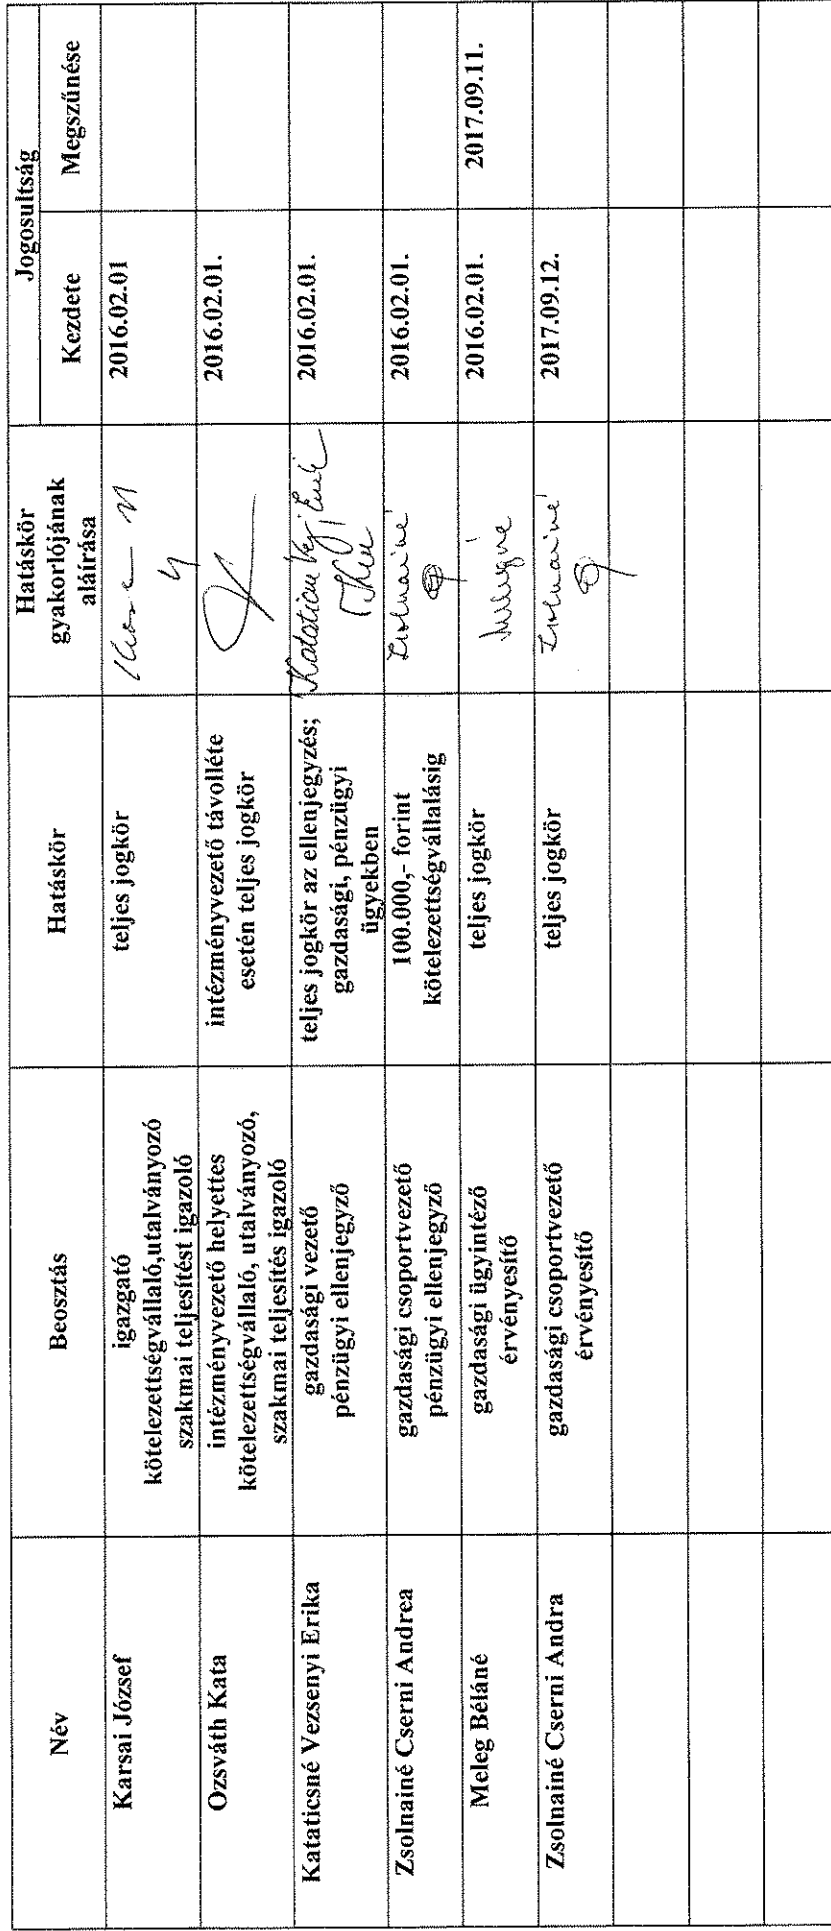 Név Beosztás Hatáskör Hatáskör gyakorlójának aláírása Jogosultság
Kezdete Megszűnése
Karsai József
igazgató
kötelezettségvállaló,utalványozó
szakmai teljesítést igazoló
teljes jogkör
2016.02.01
Ozsváth Kata
intézményvezető helyettes
kötelezettségvállaló, utalványozó,
szakmai teljesítés igazoló
intézményvezető távolléte
esetén teljes jogkör
2016.02.01.
Kataticsné Vezsenyi Erika
gazdasági vezető
pénzügyi ellenjegyző
teljes jogkör az ellenjegyzés;
gazdasági, pénzügyi
ügyekben
2016.02.01.
Zsolnainé Cserni Andrea
gazdasági csoportvezető
pénzügyi ellenjegyző
100.000,- forint
kötelezettségvállalásig
Zsolnainé
2016.02.01.
Meleg Béláné
gazdasági ügyintéző
érvényesítő
teljes jogkör
2016.02.01.
2017.09.11.
Zsolnainé Cserni Andra
gazdasági csoportvezető
érvényesítő
teljes jogkör
Zsolnainé
2017.09.12.